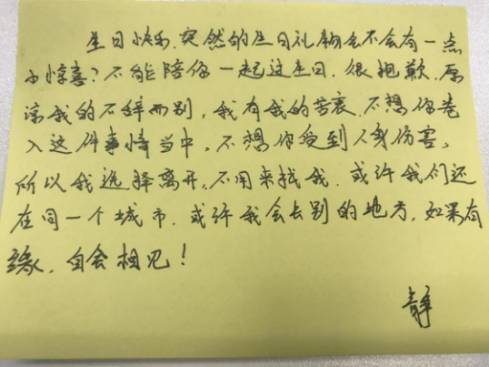 生日快乐.突然的生日礼物会不会有一点
小惊喜？不能陪你一起过生日.很抱歉，原
谅我的不辞而别，我有我的苦衷.不想你卷
入这件事情当中，不想你受到人身伤害，
所以我选择离开，不用来找我.或许我们还
在同一个城市.或许我会去别的地方，如果有
缘，自会相见！
静